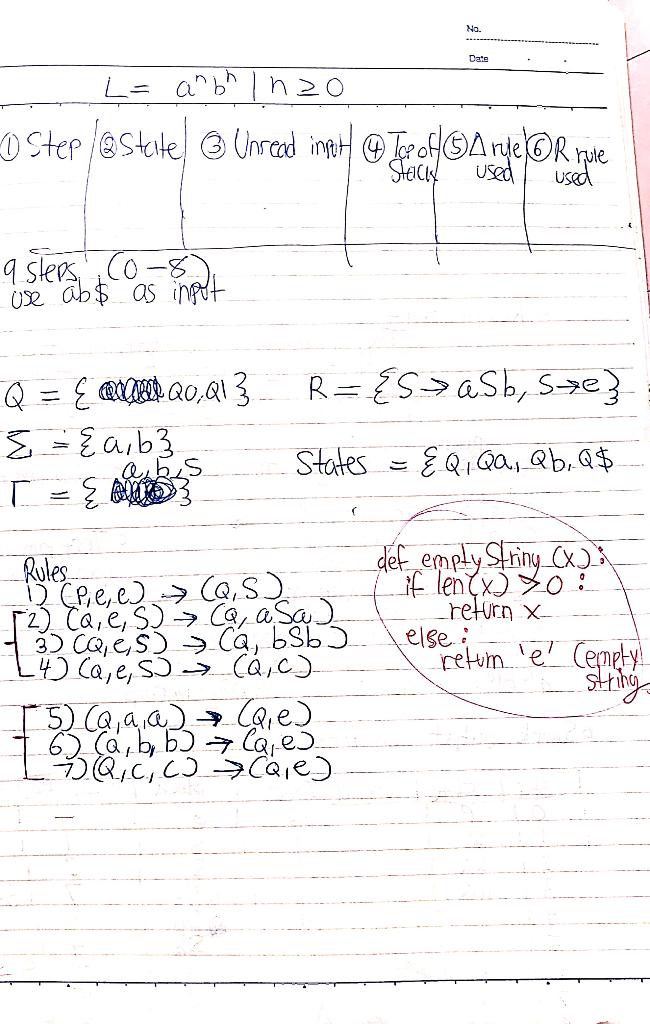 No.
Date
L = aⁿbⁿ | n ≥ 0
① Step ② State ③ Unread input ④ Top of Stack ⑤ Δ rule used ⑥ R rule used
9 steps (0-8)
use ab$ as input
Q = { Q0, Q1}
R = {S → aSb, S → e}
Σ = {a, b}
Γ = { a, b, S }
States = { Q, Qa, Qb, Q$
Rules
1) (P, e, e) → (Q, S)
2) (Q, e, S) → (Q, aSa)
3) (Q, e, S) → (Q, bSb)
4) (Q, e, S) → (Q, c)
5) (Q, a, a) → (Q, e)
6) (Q, b, b) → (Q, e)
7) (Q, c, c) → (Q, e)
def emptyString (x):
if len(x) > 0 :
return x
else :
return 'e' (empty
string